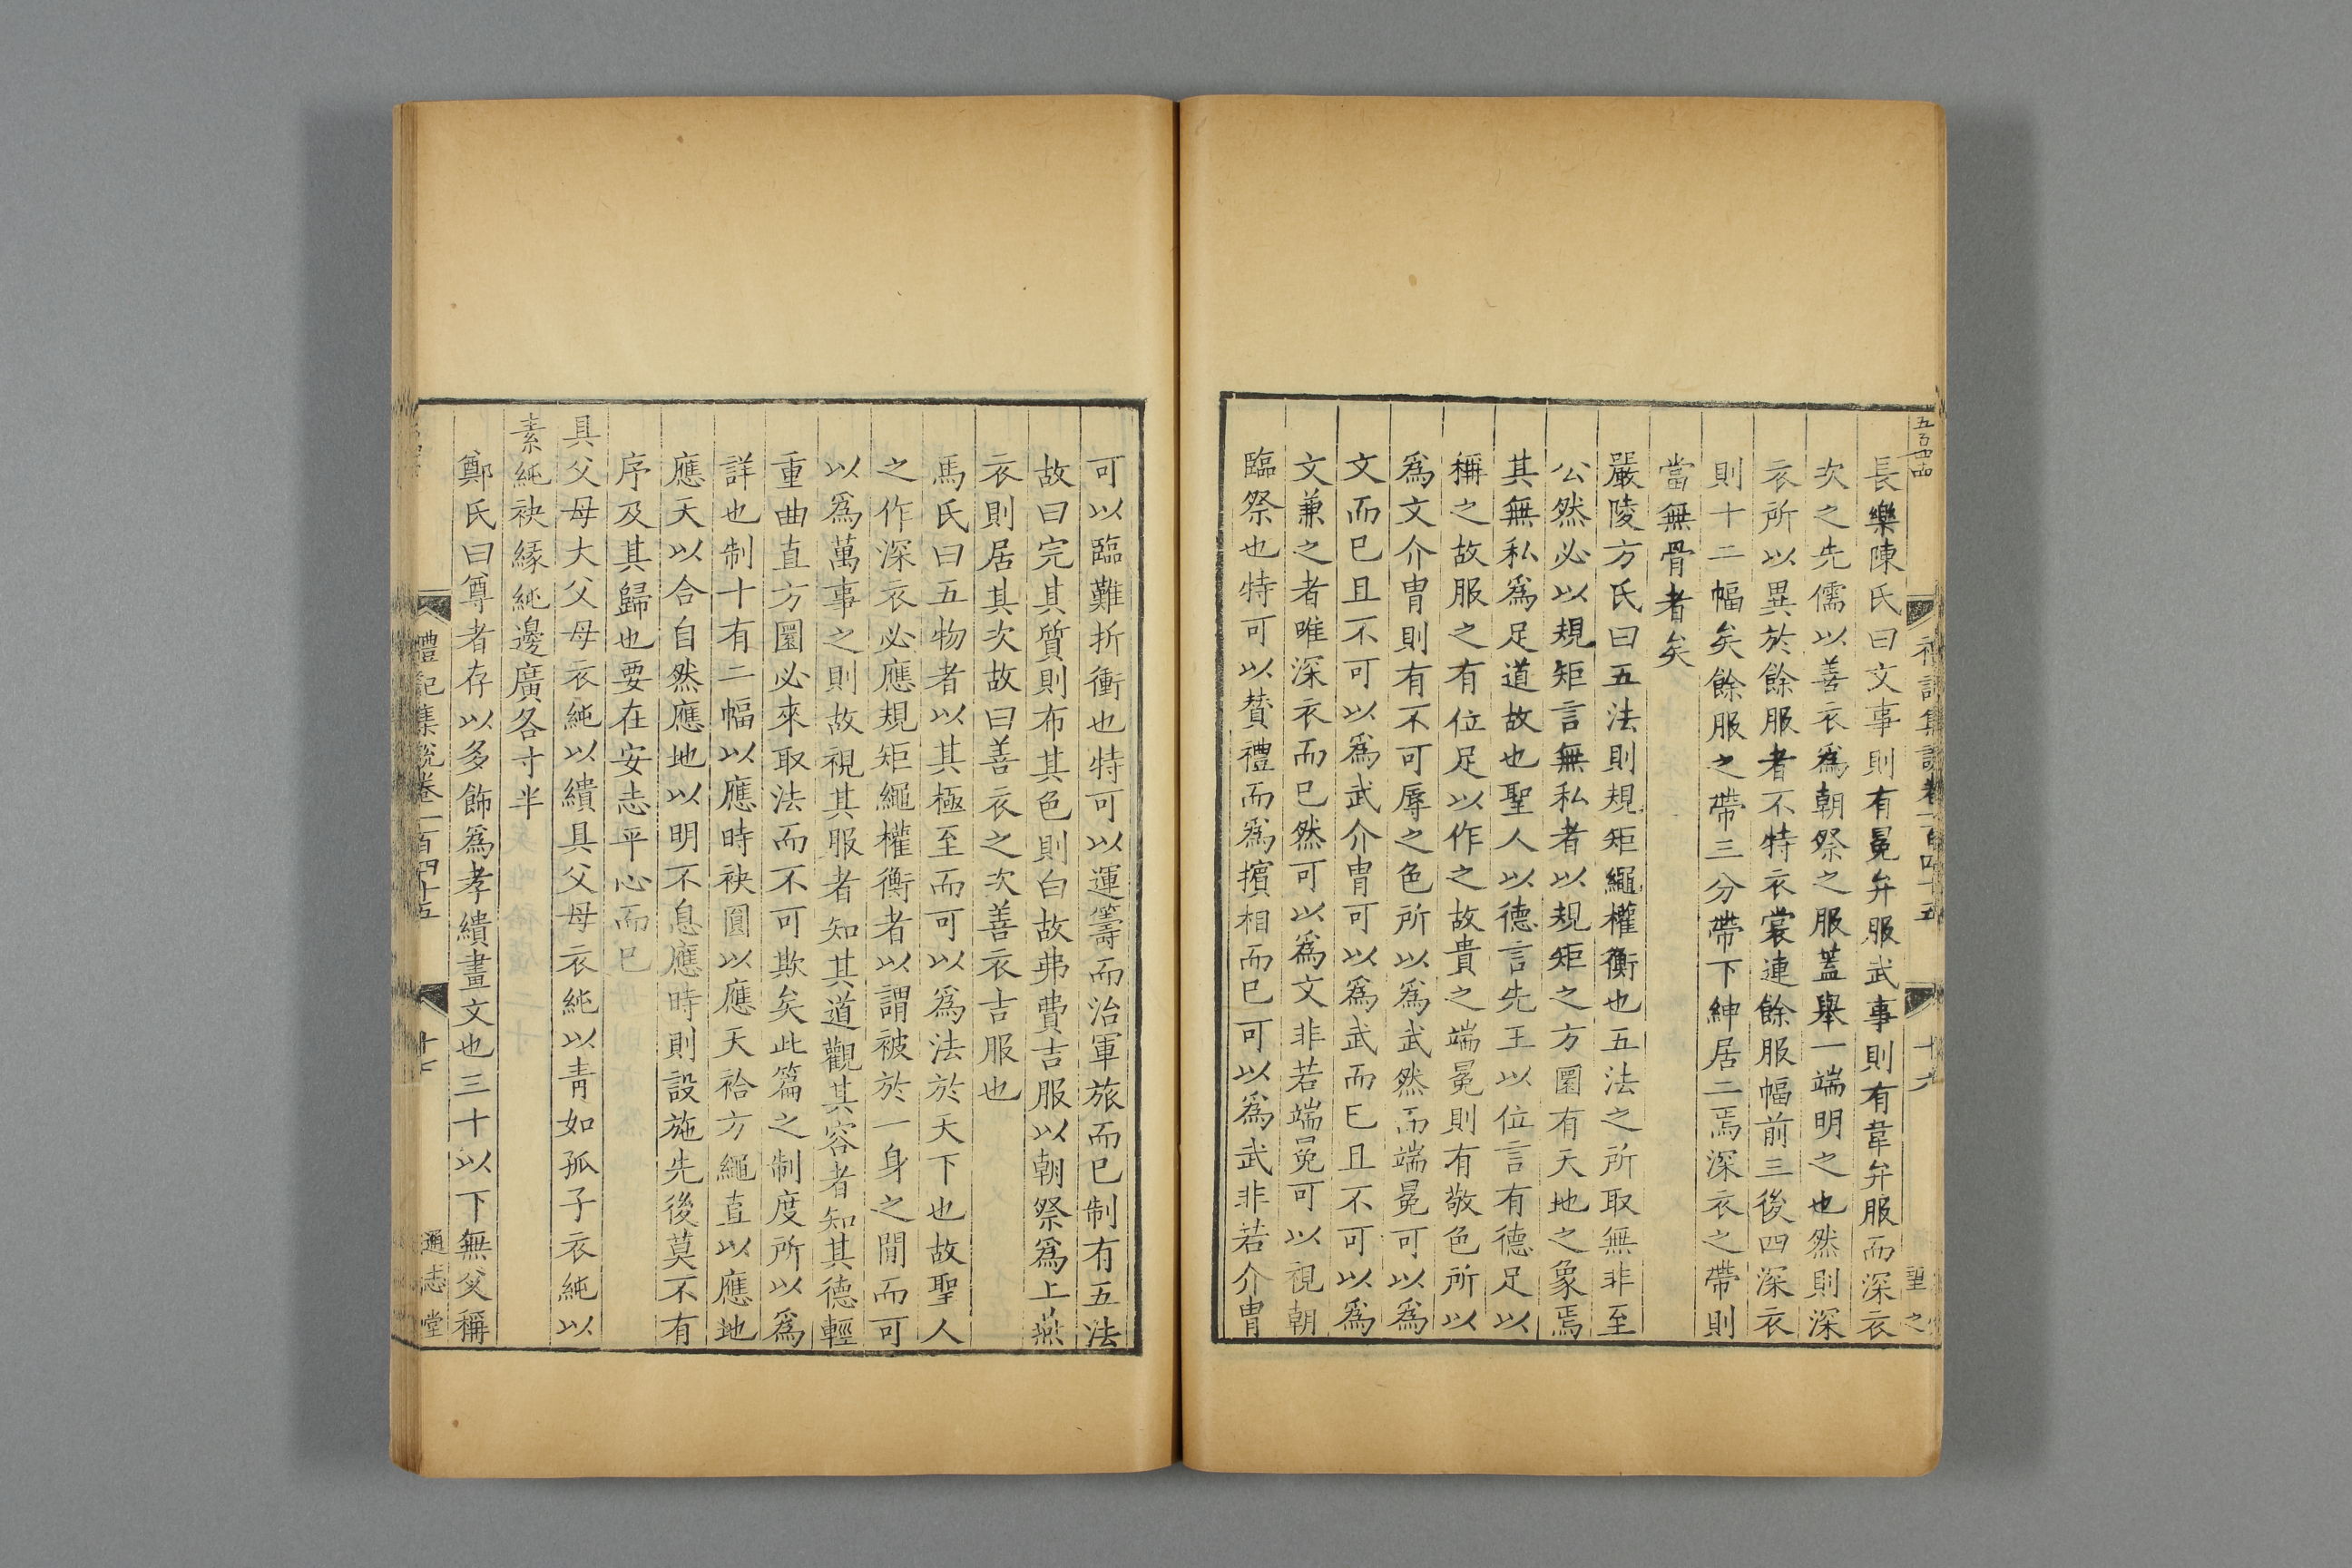 五百四四
禮記集說卷一百四十五
十六
望之
長樂陳氏曰文事則有冕弁服武事則有韋弁服而深衣
次之先儒以善衣爲朝祭之服蓋舉一端明之也然則深
衣所以異於餘服者不特衣裳連餘服幅前三後四深衣
則十二幅矣餘服之帶三分帶下紳居二焉深衣之帶則
當無骨者矣
嚴陵方氏曰五法則規矩繩權衡也五法之所取無非至
公然必以規矩言無私者以規矩之方圜有天地之象焉
其無私爲足道故也聖人以德言先王以位言有德足以
稱之故服之有位足以作之故貴之端冕則有敬色所以
爲文介胄則有不可辱之色所以爲武然而端冕可以爲
文而已且不可以爲武介胄可以爲武而已且不可以爲
文兼之者唯深衣而已然可以爲文非若端冕可以視朝
臨祭也特可以賛禮而爲擯相而已可以爲武非若介胄
可以臨難折衝也特可以運籌而治軍旅而已制有五法
故曰完其質則布其色則白故弗費吉服以朝祭爲上燕
衣則居其次故曰善衣之次善衣吉服也
馬氏曰五物者以其極至而可以爲法於天下也故聖人
之作深衣必應規矩繩權衡者以謂被於一身之閒而可
以爲萬事之則故視其服者知其道觀其容者知其德輕
重曲直方圜必來取法而不可欺矣此篇之制度所以爲
詳也制十有二幅以應時袂圓以應天袷方繩直以應地
應天以合自然應地以明不息應時則設施先後莫不有
序及其歸也要在安志平心而已
具父母大父母衣純以繢具父母衣純以青如孤子衣純以
素純袂緣純邊廣各寸半
鄭氏曰尊者存以多飾爲孝繢畫文也三十以下無父稱
禮記集說卷一百四十五
十七
通志堂